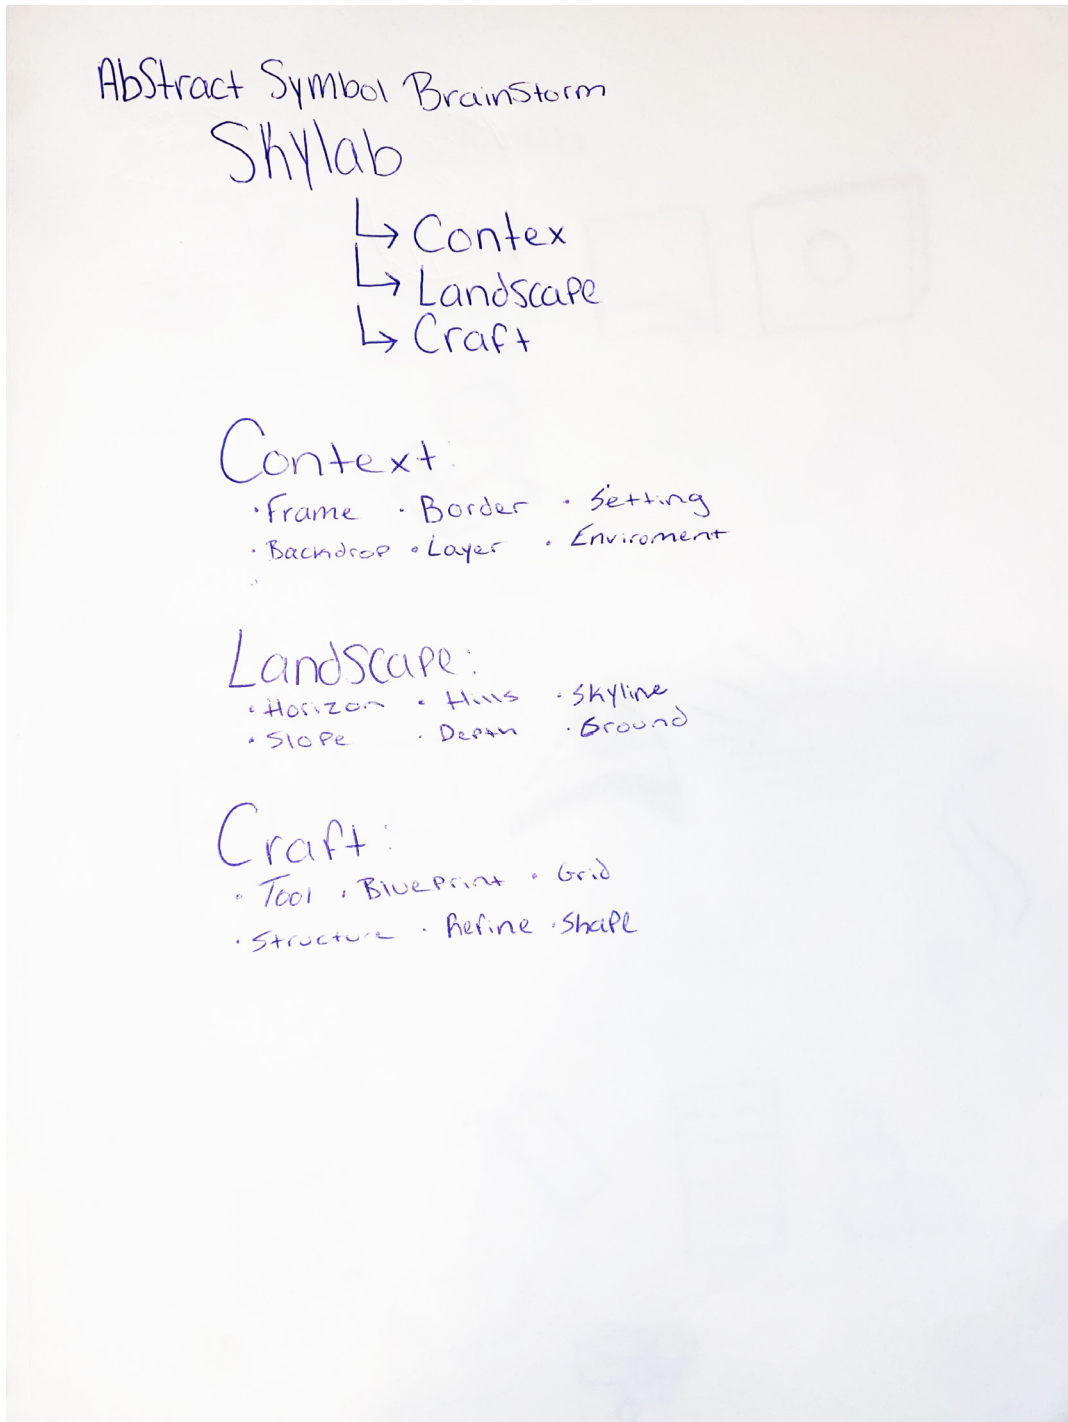 Abstract Symbol Brainstorm
Skylab
↳ Contex
↳ Landscape
↳ Craft
Context:
· Frame · Border · Setting
· Backdrop · Layer · Enviroment
Landscape:
· Horizon · Hills · Skyline
· Slope · Depth · Ground
Craft:
· Tool · Blueprint · Grid
· Structure · Refine · Shape